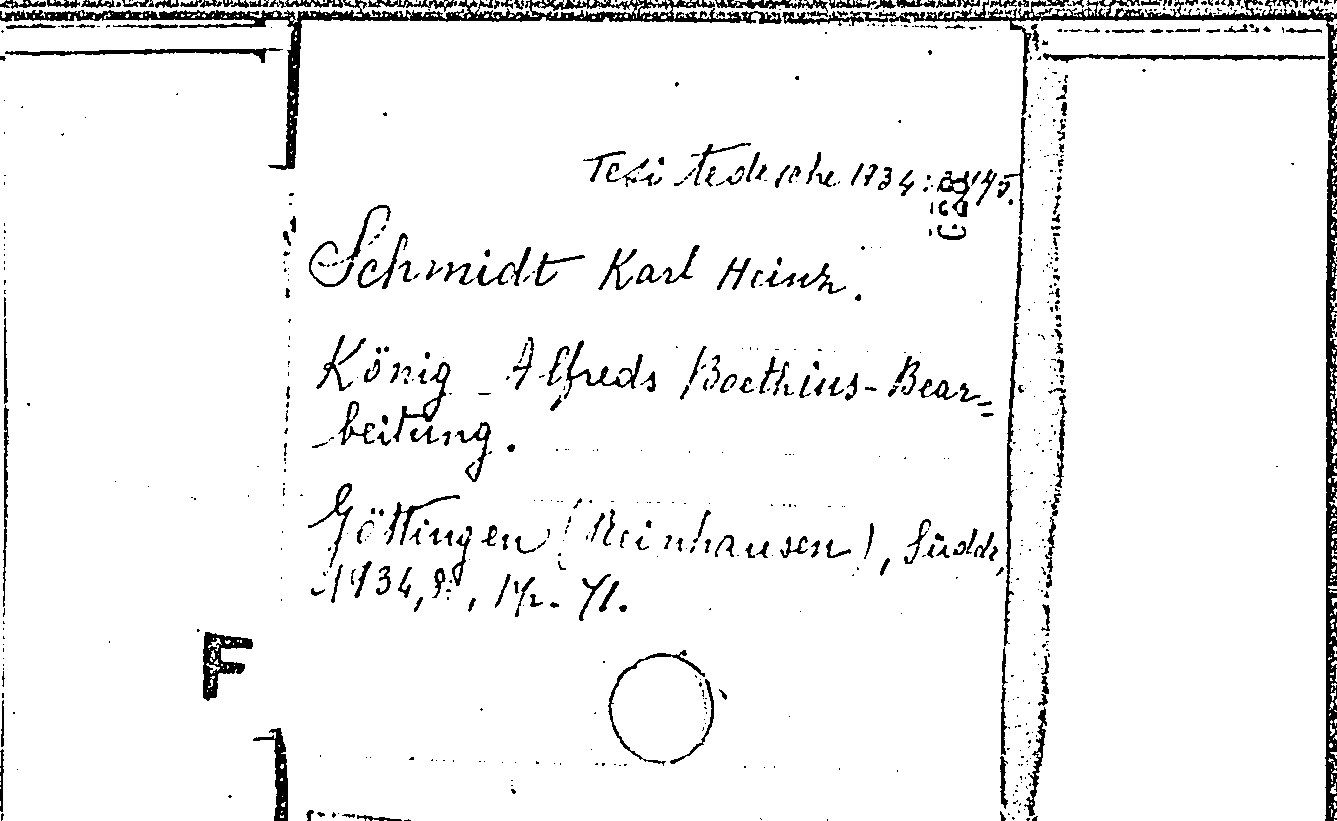 Tesi tedesche 1934:
Schmidt Karl Heinz.
König Alfreds Boethius-Bear=
beitung.
Göttingen (Reinhausen), Südd.,
1934, 8°, pp. 71.
F